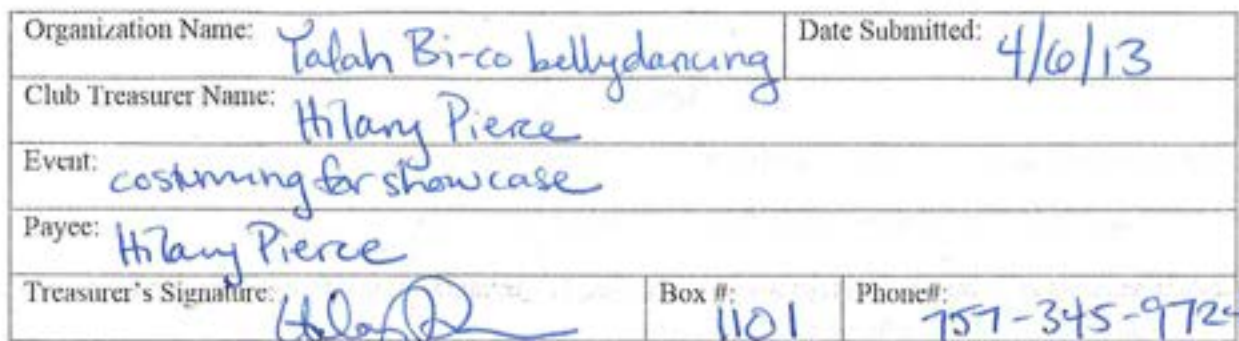 Organization Name: Yalah Bi-co bellydancing Date Submitted: 4/6/13
Club Treasurer Name: Hilary Pierce
Event: costuming for showcase
Payee: Hilary Pierce
Treasurer's Signature: Box #: 1101 Phone#: 757-345-972